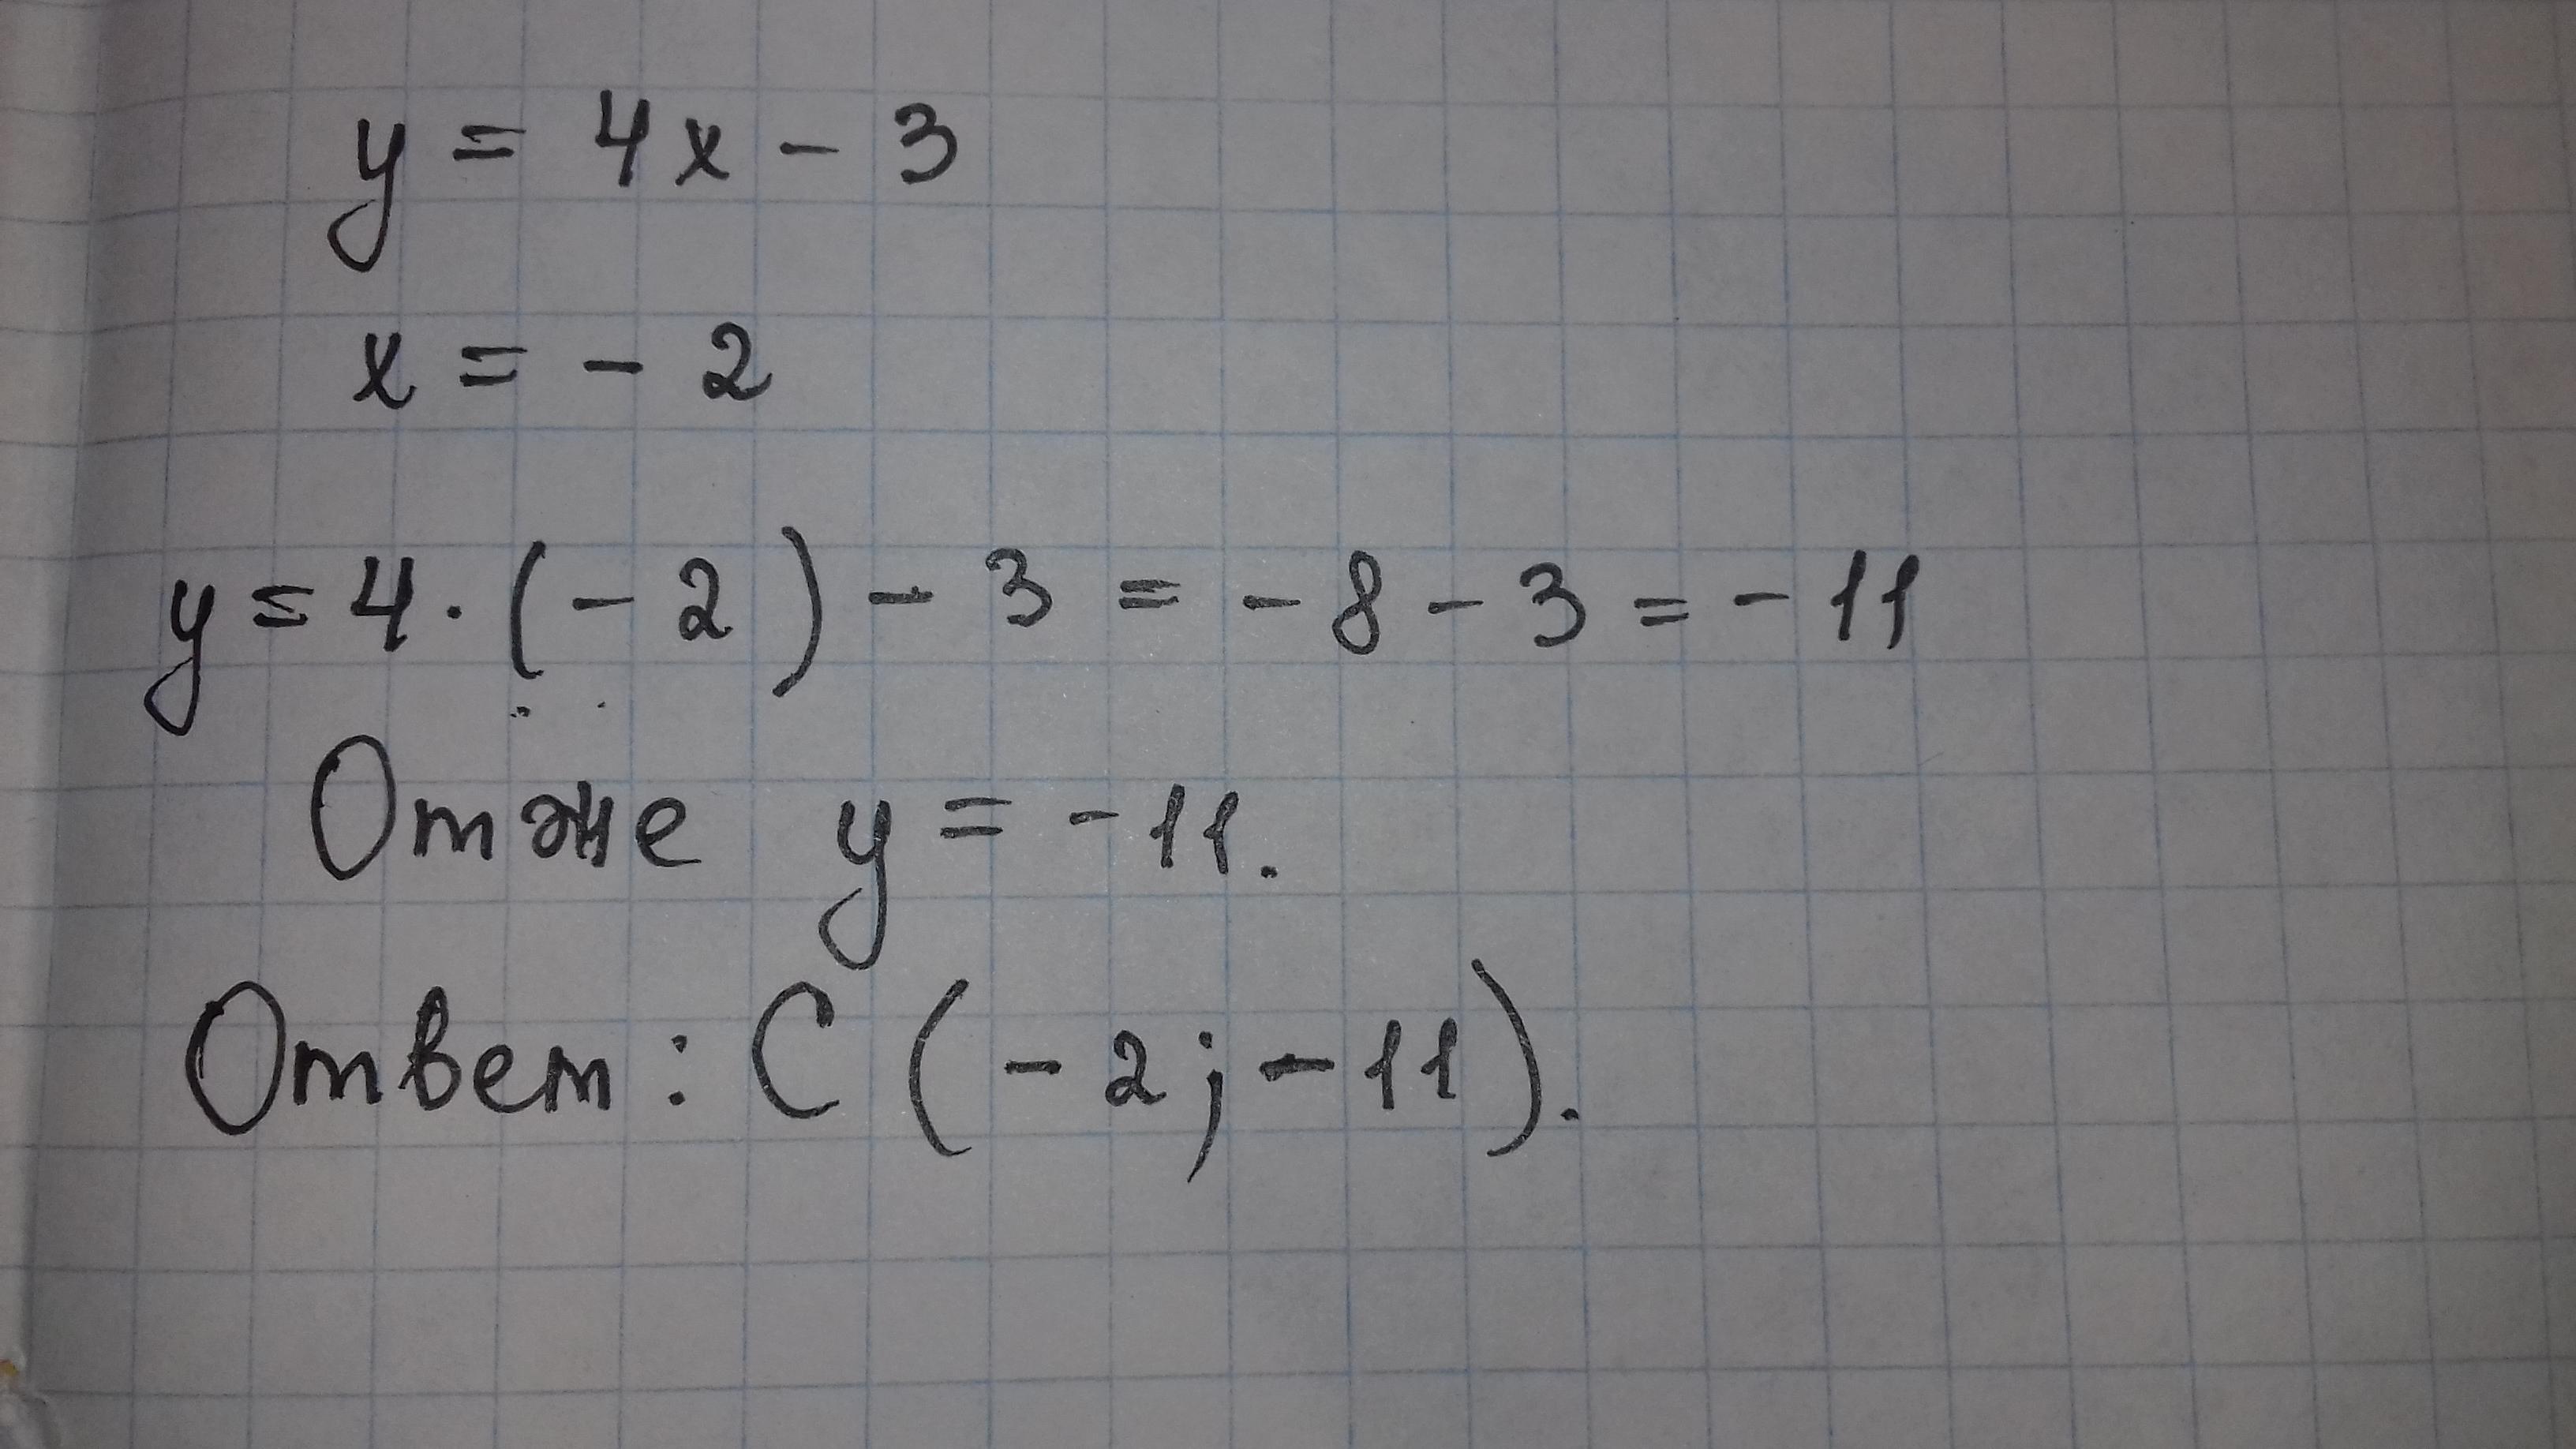 y = 4x - 3
x = - 2
y = 4 · (- 2) - 3 = - 8 - 3 = - 11
Отже y = -11.
Ответ: С (- 2; - 11).